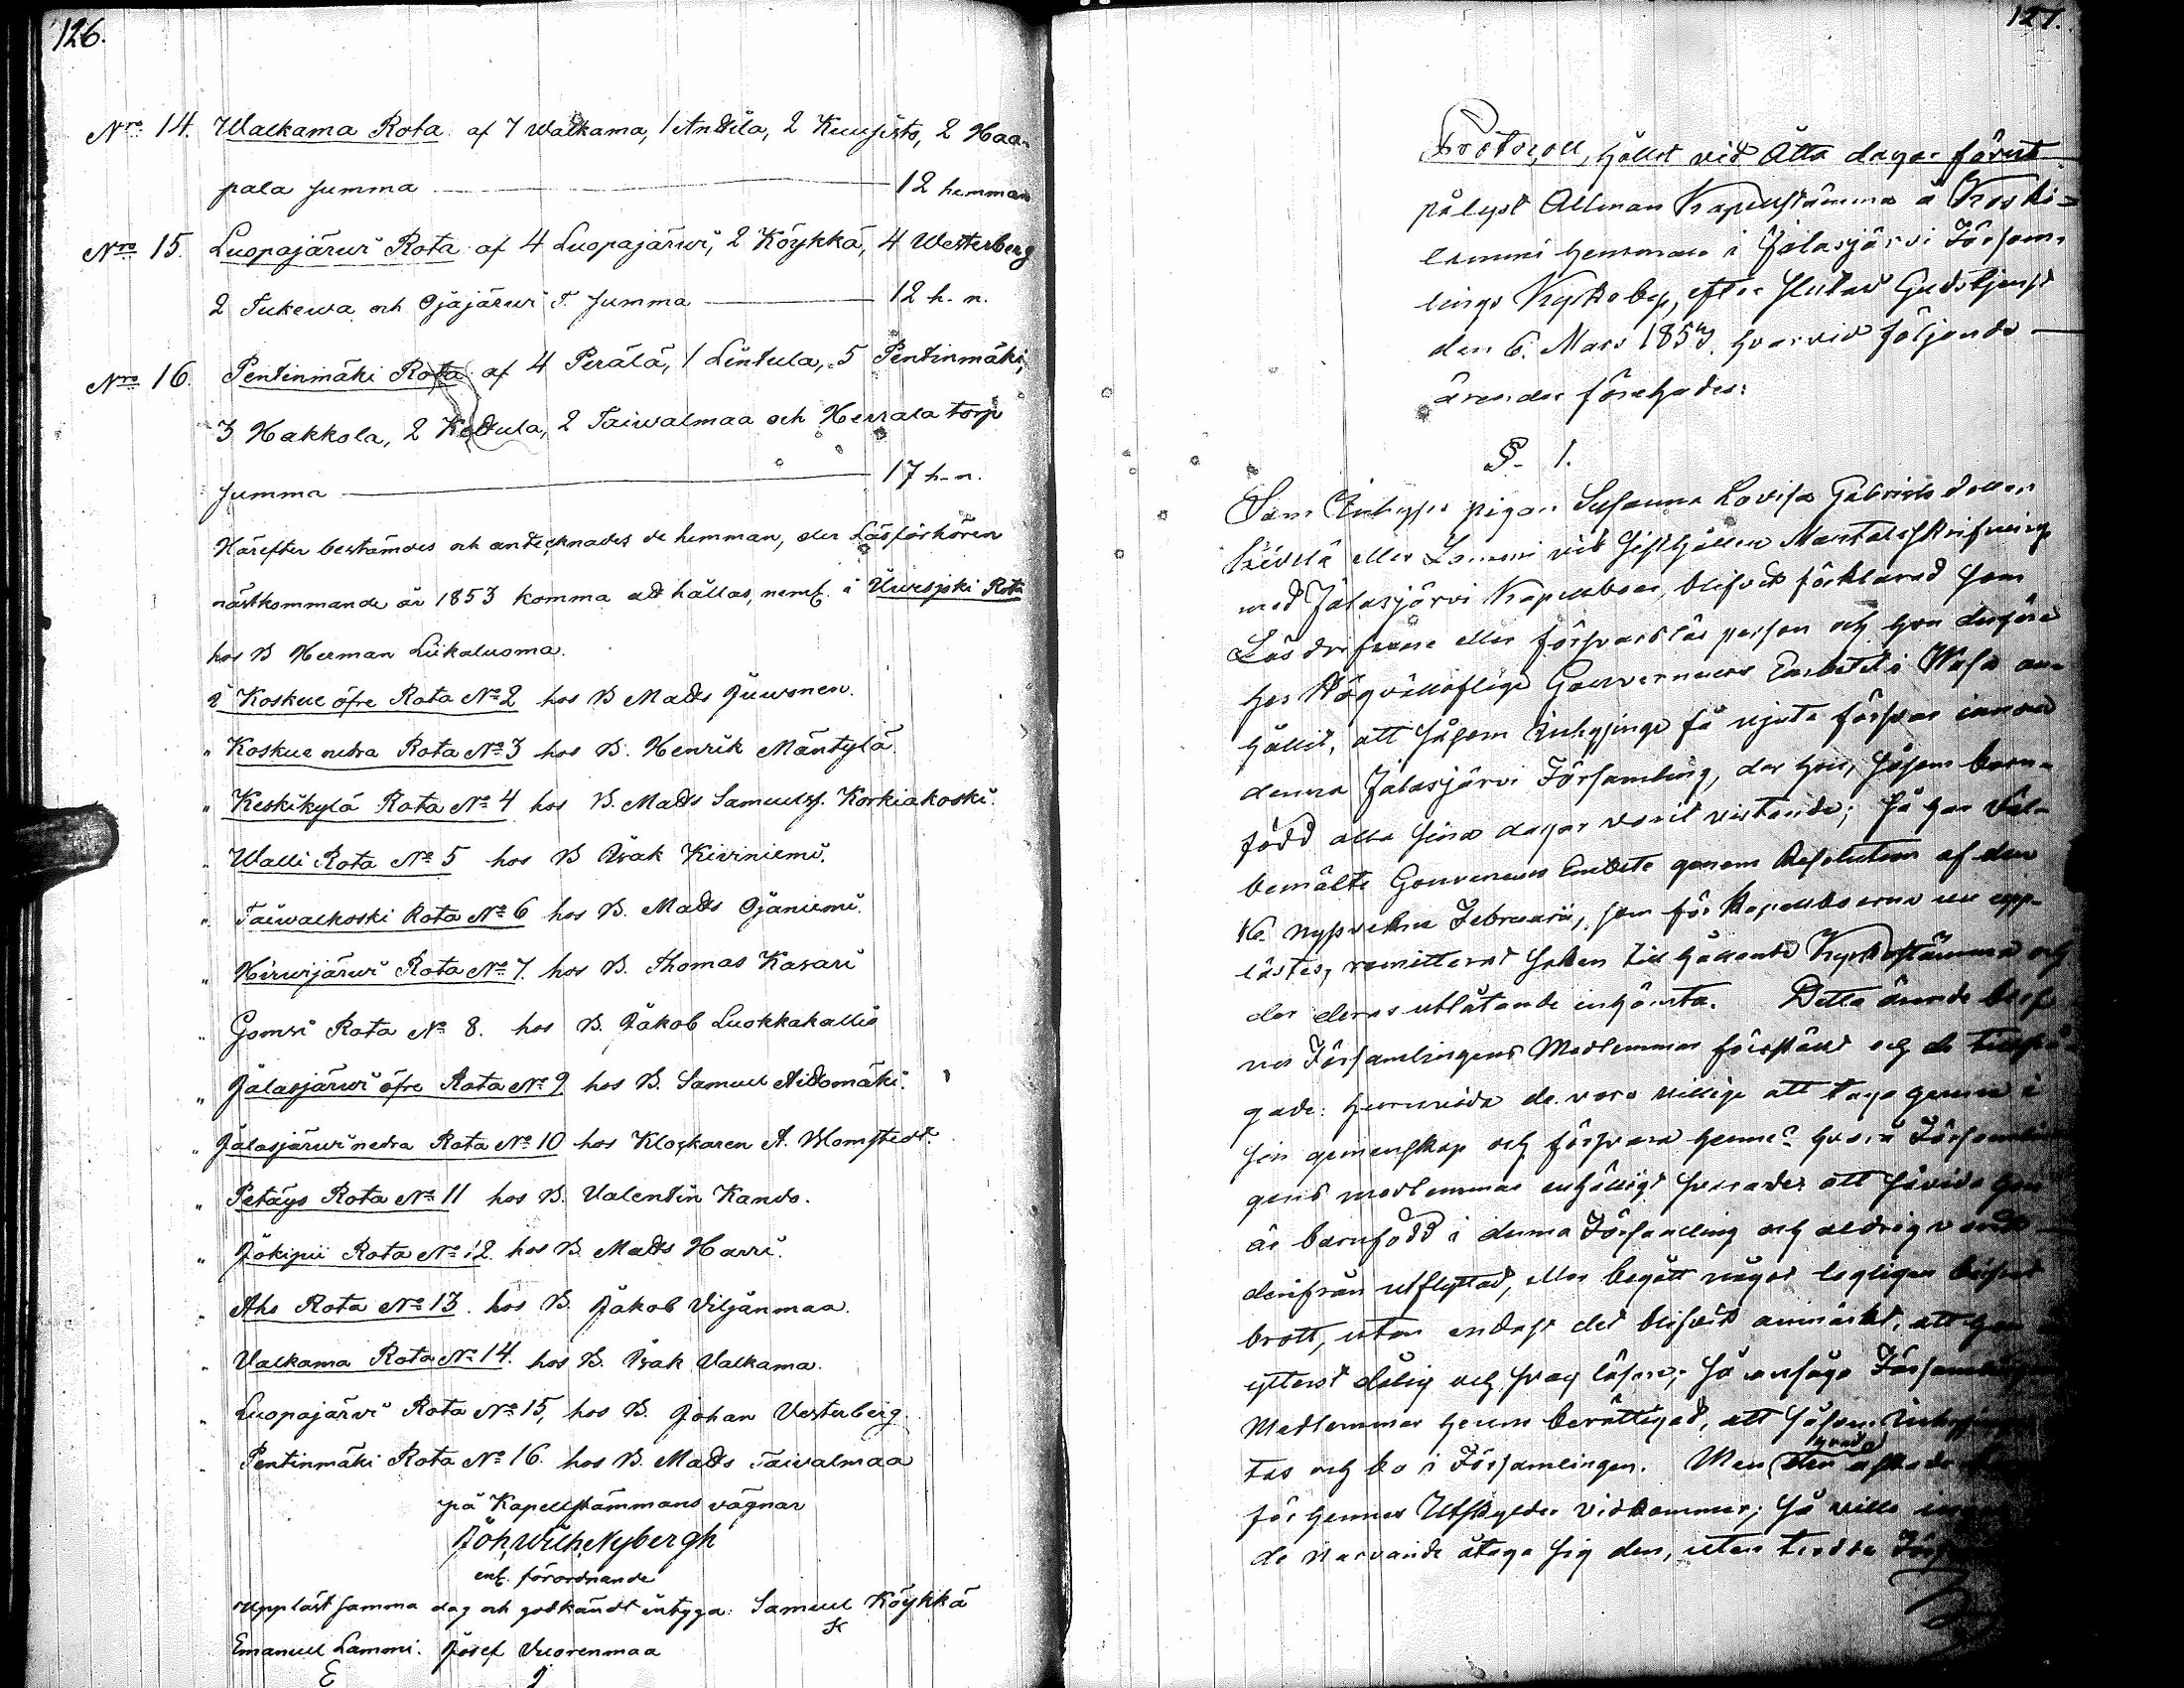 126.
Nro 14. Walkama Rota af 7 Walkama, 1 Anttila, 2 Kuujisto, 2 Haa-
pala Summa 12 hemman
Nro 15. Luopajärwi Rota af 4 Luopajärwi, 2 Köykkä, 4 Westerberg
2 Tukewa och Ojajärwi T. Summa 12 h-n.
Nro 16. Pentinmäki Rota af 4 Perälä, 1 Lintula, 5 Pentinmäki,
3 Hakkola, 2 Kottula, 2 Taiwalmaa och Herrala torp
Summa 17 h-n.
Härefter bestämdes och antecknades de hemman, der Läsförhören
nästkommande år 1853 komma att hållas, neml. i Ilwesjoki Rota
hos B Herman Liikaluoma.
i Koskue öfre Rota No 2 hos B Matts Juwonen.
" Koskue nedra Rota No 3 hos B. Henrik Mäntylä.
" Keskikylä Rota No 4 hos B. Matts Samuelsf. Korkiakoski.
" Walli Rota No 5 hos B Isak Kiviniemi.
" Taiwalkoski Rota No 6 hos B. Matts Ojaniemi.
" Hirwijärwi Rota No 7. hos B. Thomas Kasari
" Gomsi Rota No 8. hos B. Jakob Luokkakallio
" Jalasjärwi öfre Rota No 9 hos B. Samuel Aittomäki.
" Jalasjärwi nedra Rota No 10 hos Klockaren A. Blomstedt.
" Petäys Rota No 11 hos B. Valentin Kando.
" Jokipii Rota No 12. hos B. Matts Harri.
" Aho Rota No 13. hos B. Jakob Viljanmaa.
" Valkama Rota No 14. hos B. Isak Valkama.
" Luopajärvi Rota No 15, hos B. Johan Vesterberg.
" Pentinmäki Rota No 16. hos B. Matts Taivalmaa
på Kapellstämmans vägnar
Joh. Wilh. Nybergh
enl. förordnande
Uppläst samma dag och godkändt intyga: Samuel Köykkä
K
Emanuel Lammi. Josef Vuorenmaa
E J
127.
Protocoll, hållet vid Åtta dagar förut
pålyst Allmän Kapellstämma å Koski-
lammi hemman i Jalasjärvi Försam-
lings Kyrkoby, efter slutad Gudstjenst
den 6. Mars 1853, hvarvid följande
ärender förehades:
§. 1.
Som Inhyses pigan Susanna Lovisa Gabrielsdotter
eller Lammi vid sisthållen Mantalsskrifning
med Jalasjärvi Kapellboer, blifvit förklarad som
Lösdrifvare eller försvarslös person och hon derföre
hos Högvällofliga Gouverneurs Embetet i Wasa an-
hållit, att såsom Inhysinge få njuta försvar innom
denna Jalasjärvi Församling, der hon, såsom barn-
född alla sina dagar varit vistande; så har Väl-
bemälte Gouverneurs Embete genom Resolution af den
16. nyssvekne Februarii, som för Kapellboerne nu upp-
lästes, remitterat saken till hållande Kyrkostämma och
der deras utlåtande inhämta. Detta ärende blef
nu Församlingens Medlemmar föreställt och de tillfrå-
gade: huruvida de voro villige att taga henne i
sin gemenskap och försvara henne? hvarå Församlin-
gens medlemmar enhälligt svarade: att såvida hon
är barnfödd i denna Församling och aldrig varit
derifrån utflyttad, eller begått något lagligen bevisat
brott, utan endast det blifvit anmärkt, att hon
ytterst dålig och svag läsare; så ansågo Församlingens
Medlemmar henne berättigad, att såsom Inhysinge
tas och bo i Församlingen. Men hvad
för hennes Utskylder vidkommer; så ville
de närvarande åtaga sig den, utan